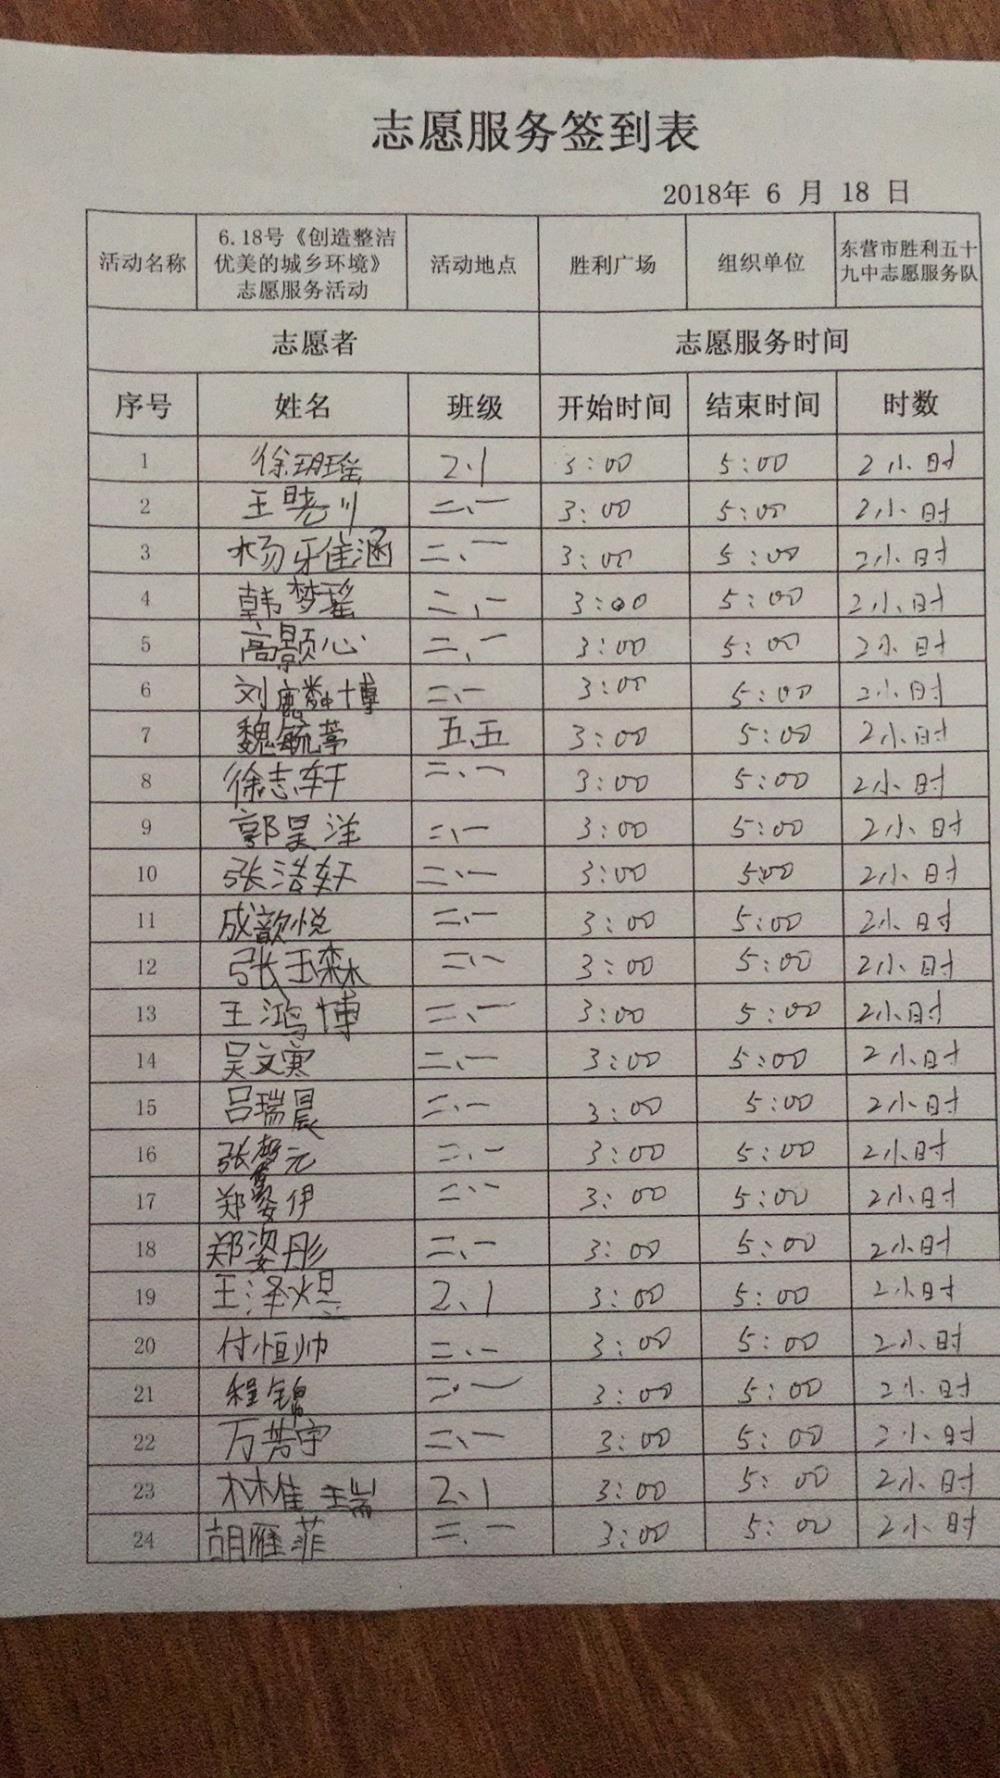 志愿服务签到表
2018年 6 月 18 日
活动名称 6.18号《创造整洁优美的城乡环境》志愿服务活动 活动地点 胜利广场 组织单位 东营市胜利五十九中志愿服务队
志愿者 志愿服务时间
序号 姓名 班级 开始时间 结束时间 时数
1 徐玥瑶 2.1 3:00 5:00 2小时
2 王 川 二、一 3:00 5:00 2小时
3 杨雅涵 二、一 3:00 5:00 2小时
4 韩梦瑶 二、一 3:00 5:00 2小时
5 高颢心 二、一 3:00 5:00 2小时
6 刘麟博 二、一 3:00 5:00 2小时
7 魏毓葶 五、五 3:00 5:00 2小时
8 徐志轩 二、一 3:00 5:00 2小时
9 郭昊洋 二、一 3:00 5:00 2小时
10 张浩轩 二、一 3:00 5:00 2小时
11 成歆悦 二、一 3:00 5:00 2小时
12 张玉森 二、一 3:00 5:00 2小时
13 王鸿博 二、一 3:00 5:00 2小时
14 吴文寒 二、一 3:00 5:00 2小时
15 吕瑞晨 二、一 3:00 5:00 2小时
16 张馨元 二、一 3:00 5:00 2小时
17 郑姿伊 二、一 3:00 5:00 2小时
18 郑姿彤 二、一 3:00 5:00 2小时
19 王泽焜 2、1 3:00 5:00 2小时
20 付恒帅 二、一 3:00 5:00 2小时
21 程锦 二、一 3:00 5:00 2小时
22 万芳宇 二、一 3:00 5:00 2小时
23 林佳瑞 2、1 3:00 5:00 2小时
24 胡雁菲 二、一 3:00 5:00 2小时